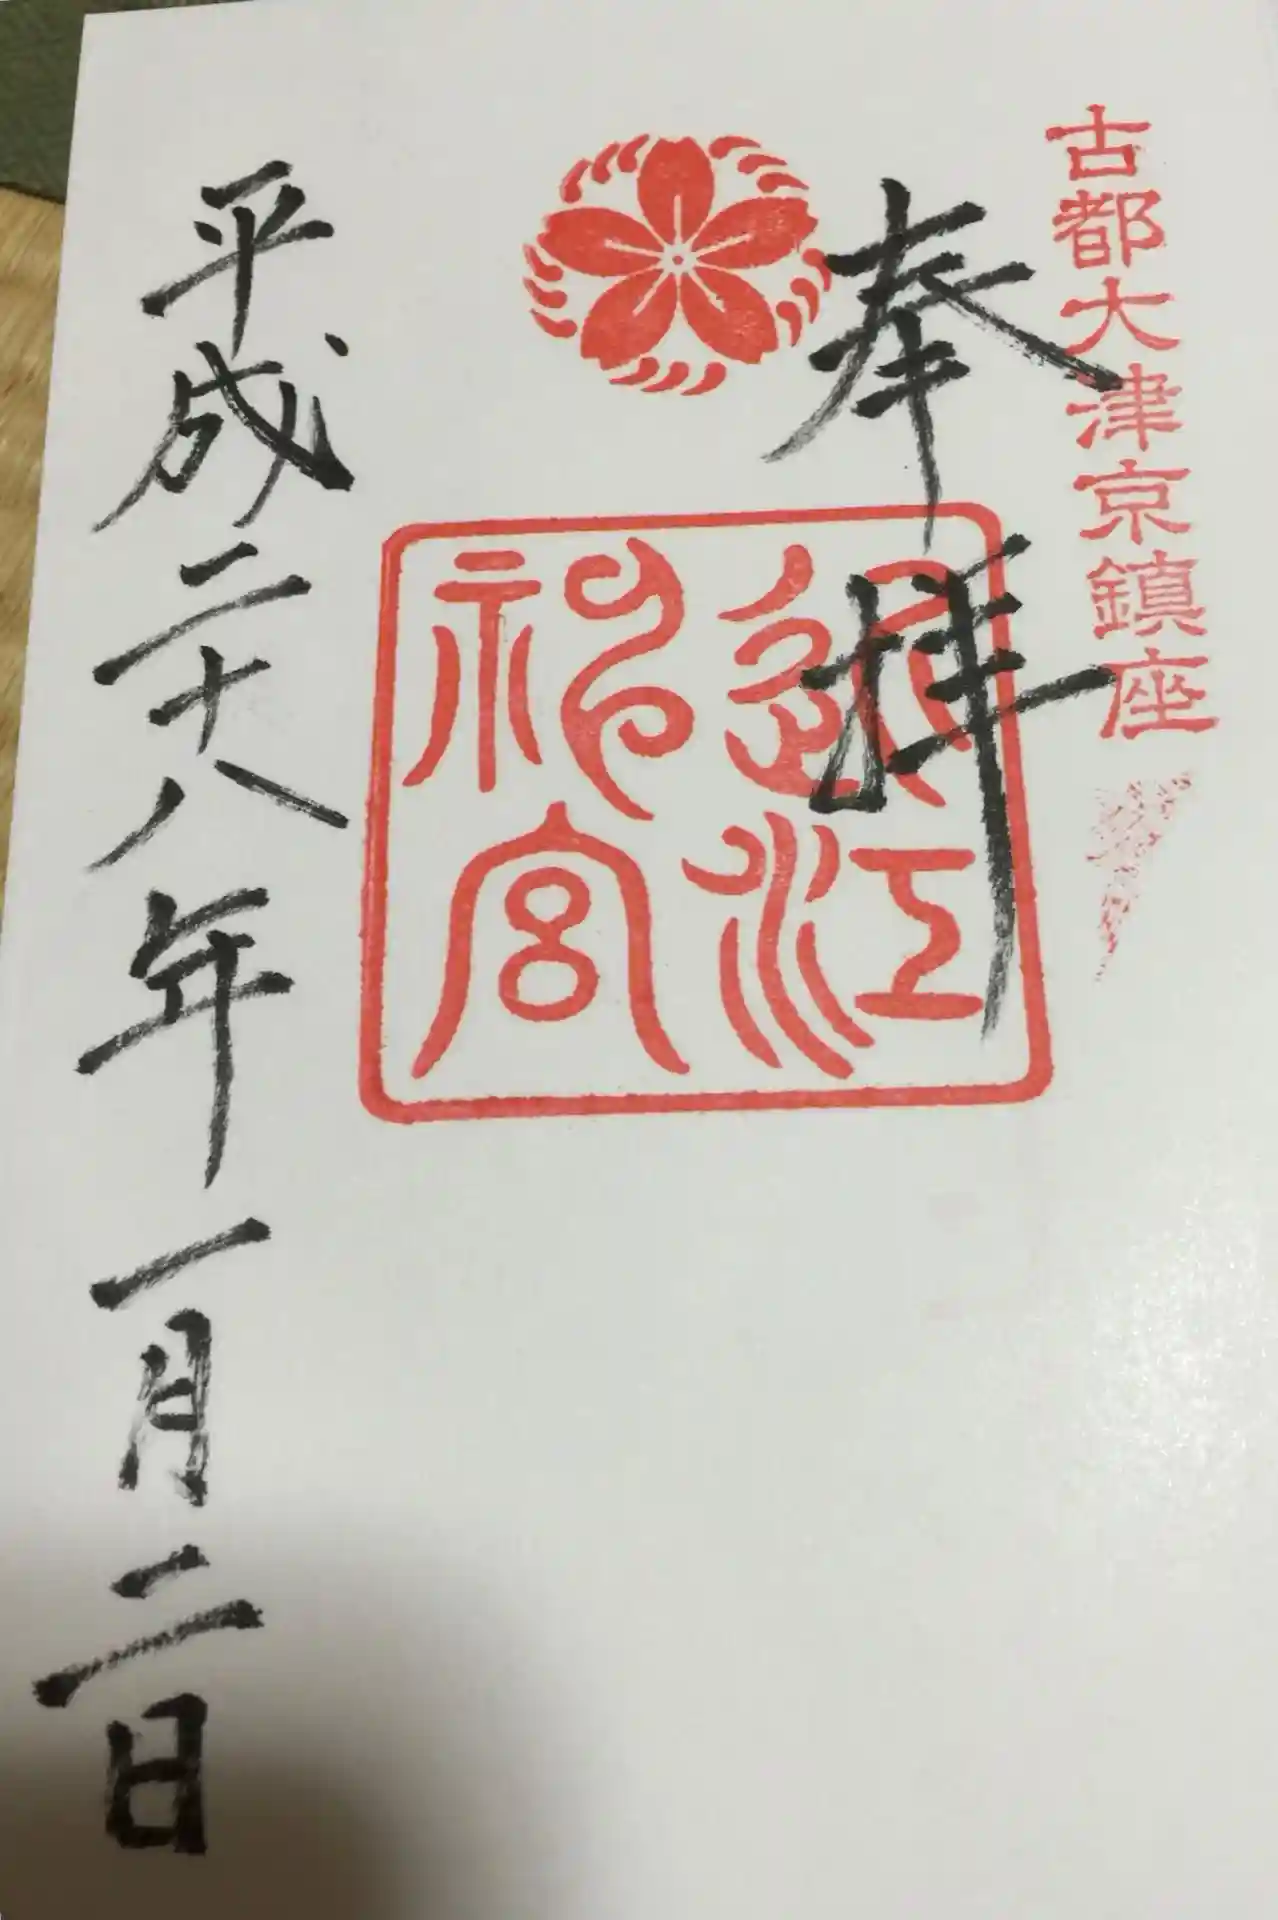 古都大津京鎮座
奉拝
近江神宮
平成二十八年一月二日